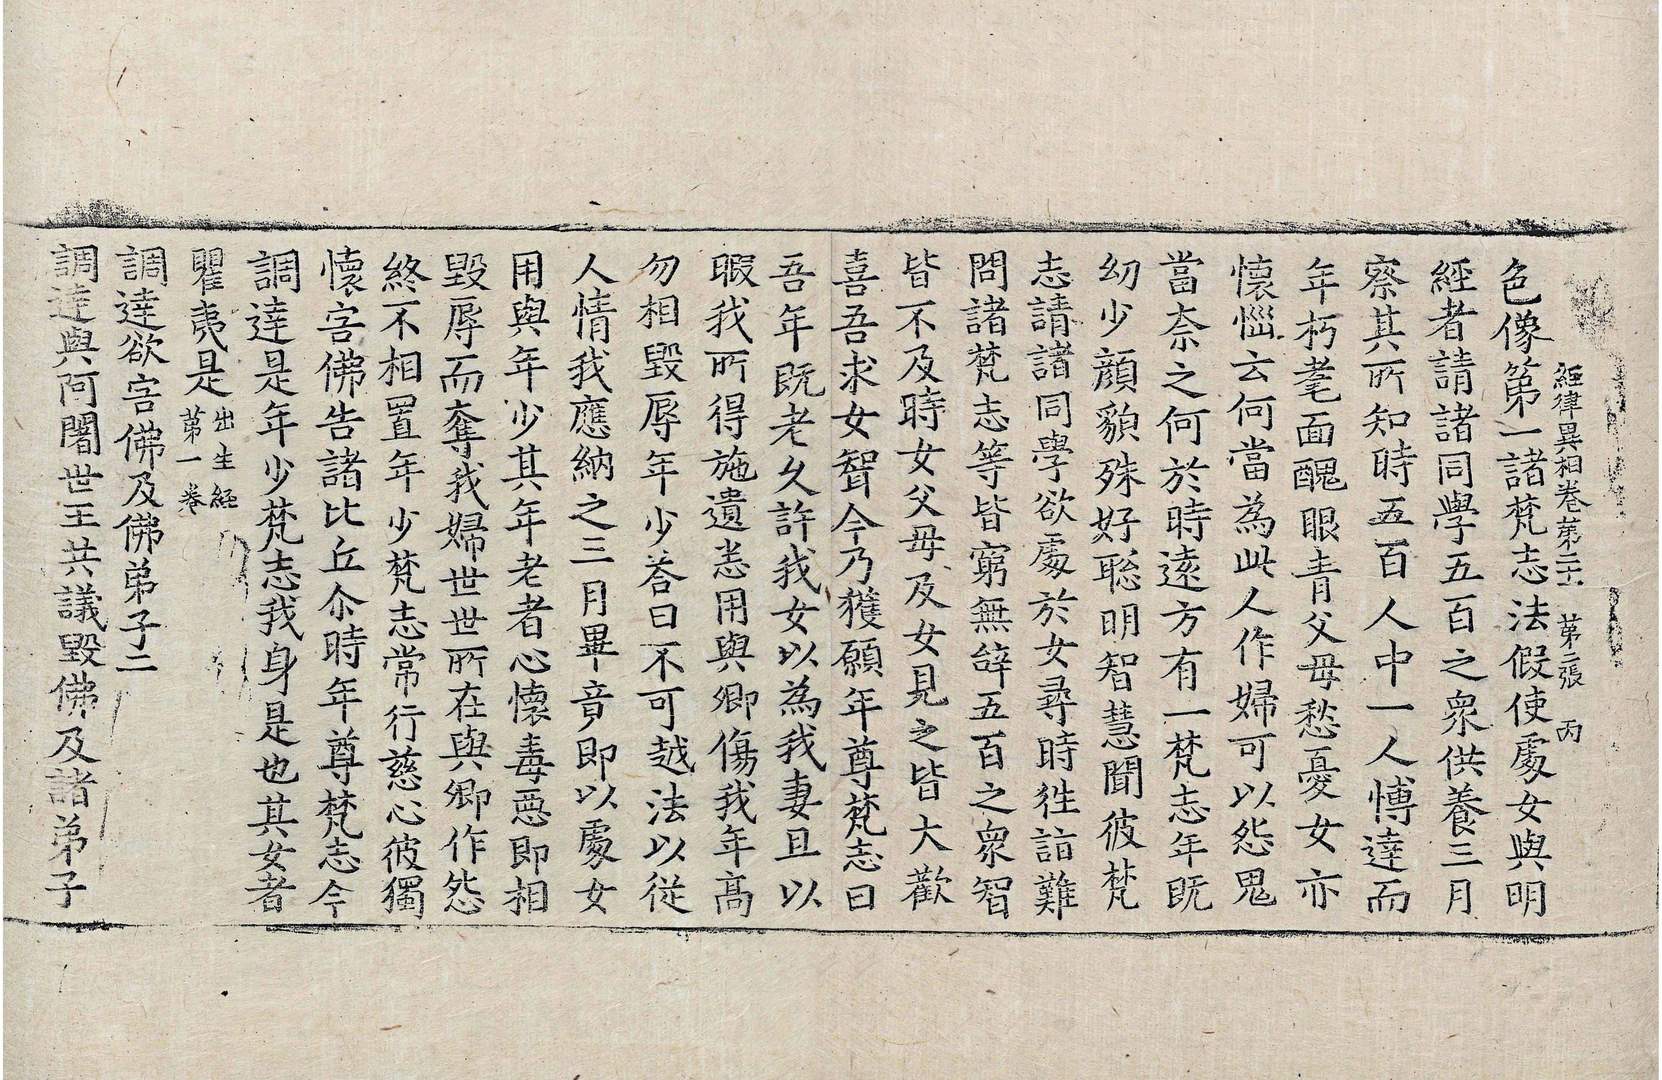 經律異相卷第二十一 第二張 丙
色像第一諸梵志法假使處女與明
經者請諸同學五百之衆供養三月
察其所知時五百人中一人博達而
年朽耄面醜眼青父母愁憂女亦
懷惱云何當為此人作婦可以怨鬼
當柰之何於時遠方有一梵志年既
幼少顏貌殊好聡明智慧聞彼梵
志請諸同學欲處於女尋時徃詣難
問諸梵志等皆窮無辝五百之衆智
皆不及時女父母及女見之皆大歡
喜吾求女聟今乃獲願年尊梵志曰
吾年既老久許我女以為我妻且以
暇我所得施遺悉用與卿傷我年髙
勿相毀辱年少荅曰不可越法以從
人情我應納之三月畢竟即以處女
用與年少其年老者心懷毒惡即相
毀辱而奪我婦世世所在與卿作怨
終不相置年少梵志常行慈心彼獨
懷害佛告諸比丘尒時年尊梵志今
調達是年少梵志我身是也其女者
瞿夷是出生經第一卷
調達欲害佛及佛弟子二
調達與阿闍世王共議毀佛及諸弟子